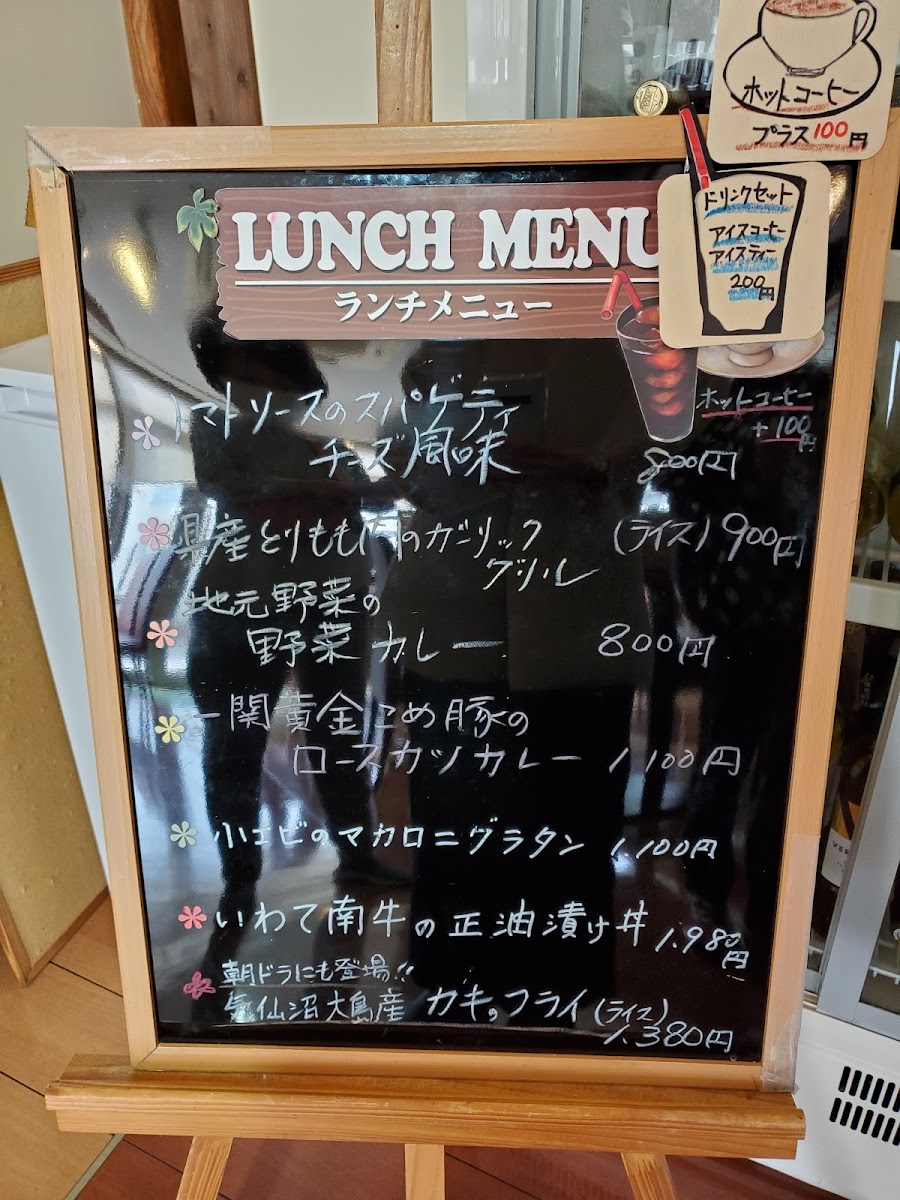 ホットコーヒー
プラス100円
ドリンクセット
アイスコーヒー
アイスティー
200円
LUNCH MENU
ランチメニュー
ホットコーヒー
+100円
トマトソースのスパゲティ
チーズ風味 800円
県産とりもも肉のガーリック (ライス) 900円
グリル
地元野菜の
野菜カレー 800円
一関黄金こめ豚の
ロースカツカレー 1,100円
小エビのマカロニグラタン 1,100円
いわて南牛の正油漬け丼 1,980円
朝ドラにも登場!!
気仙沼大島産 カキのフライ (ライス)
1,380円